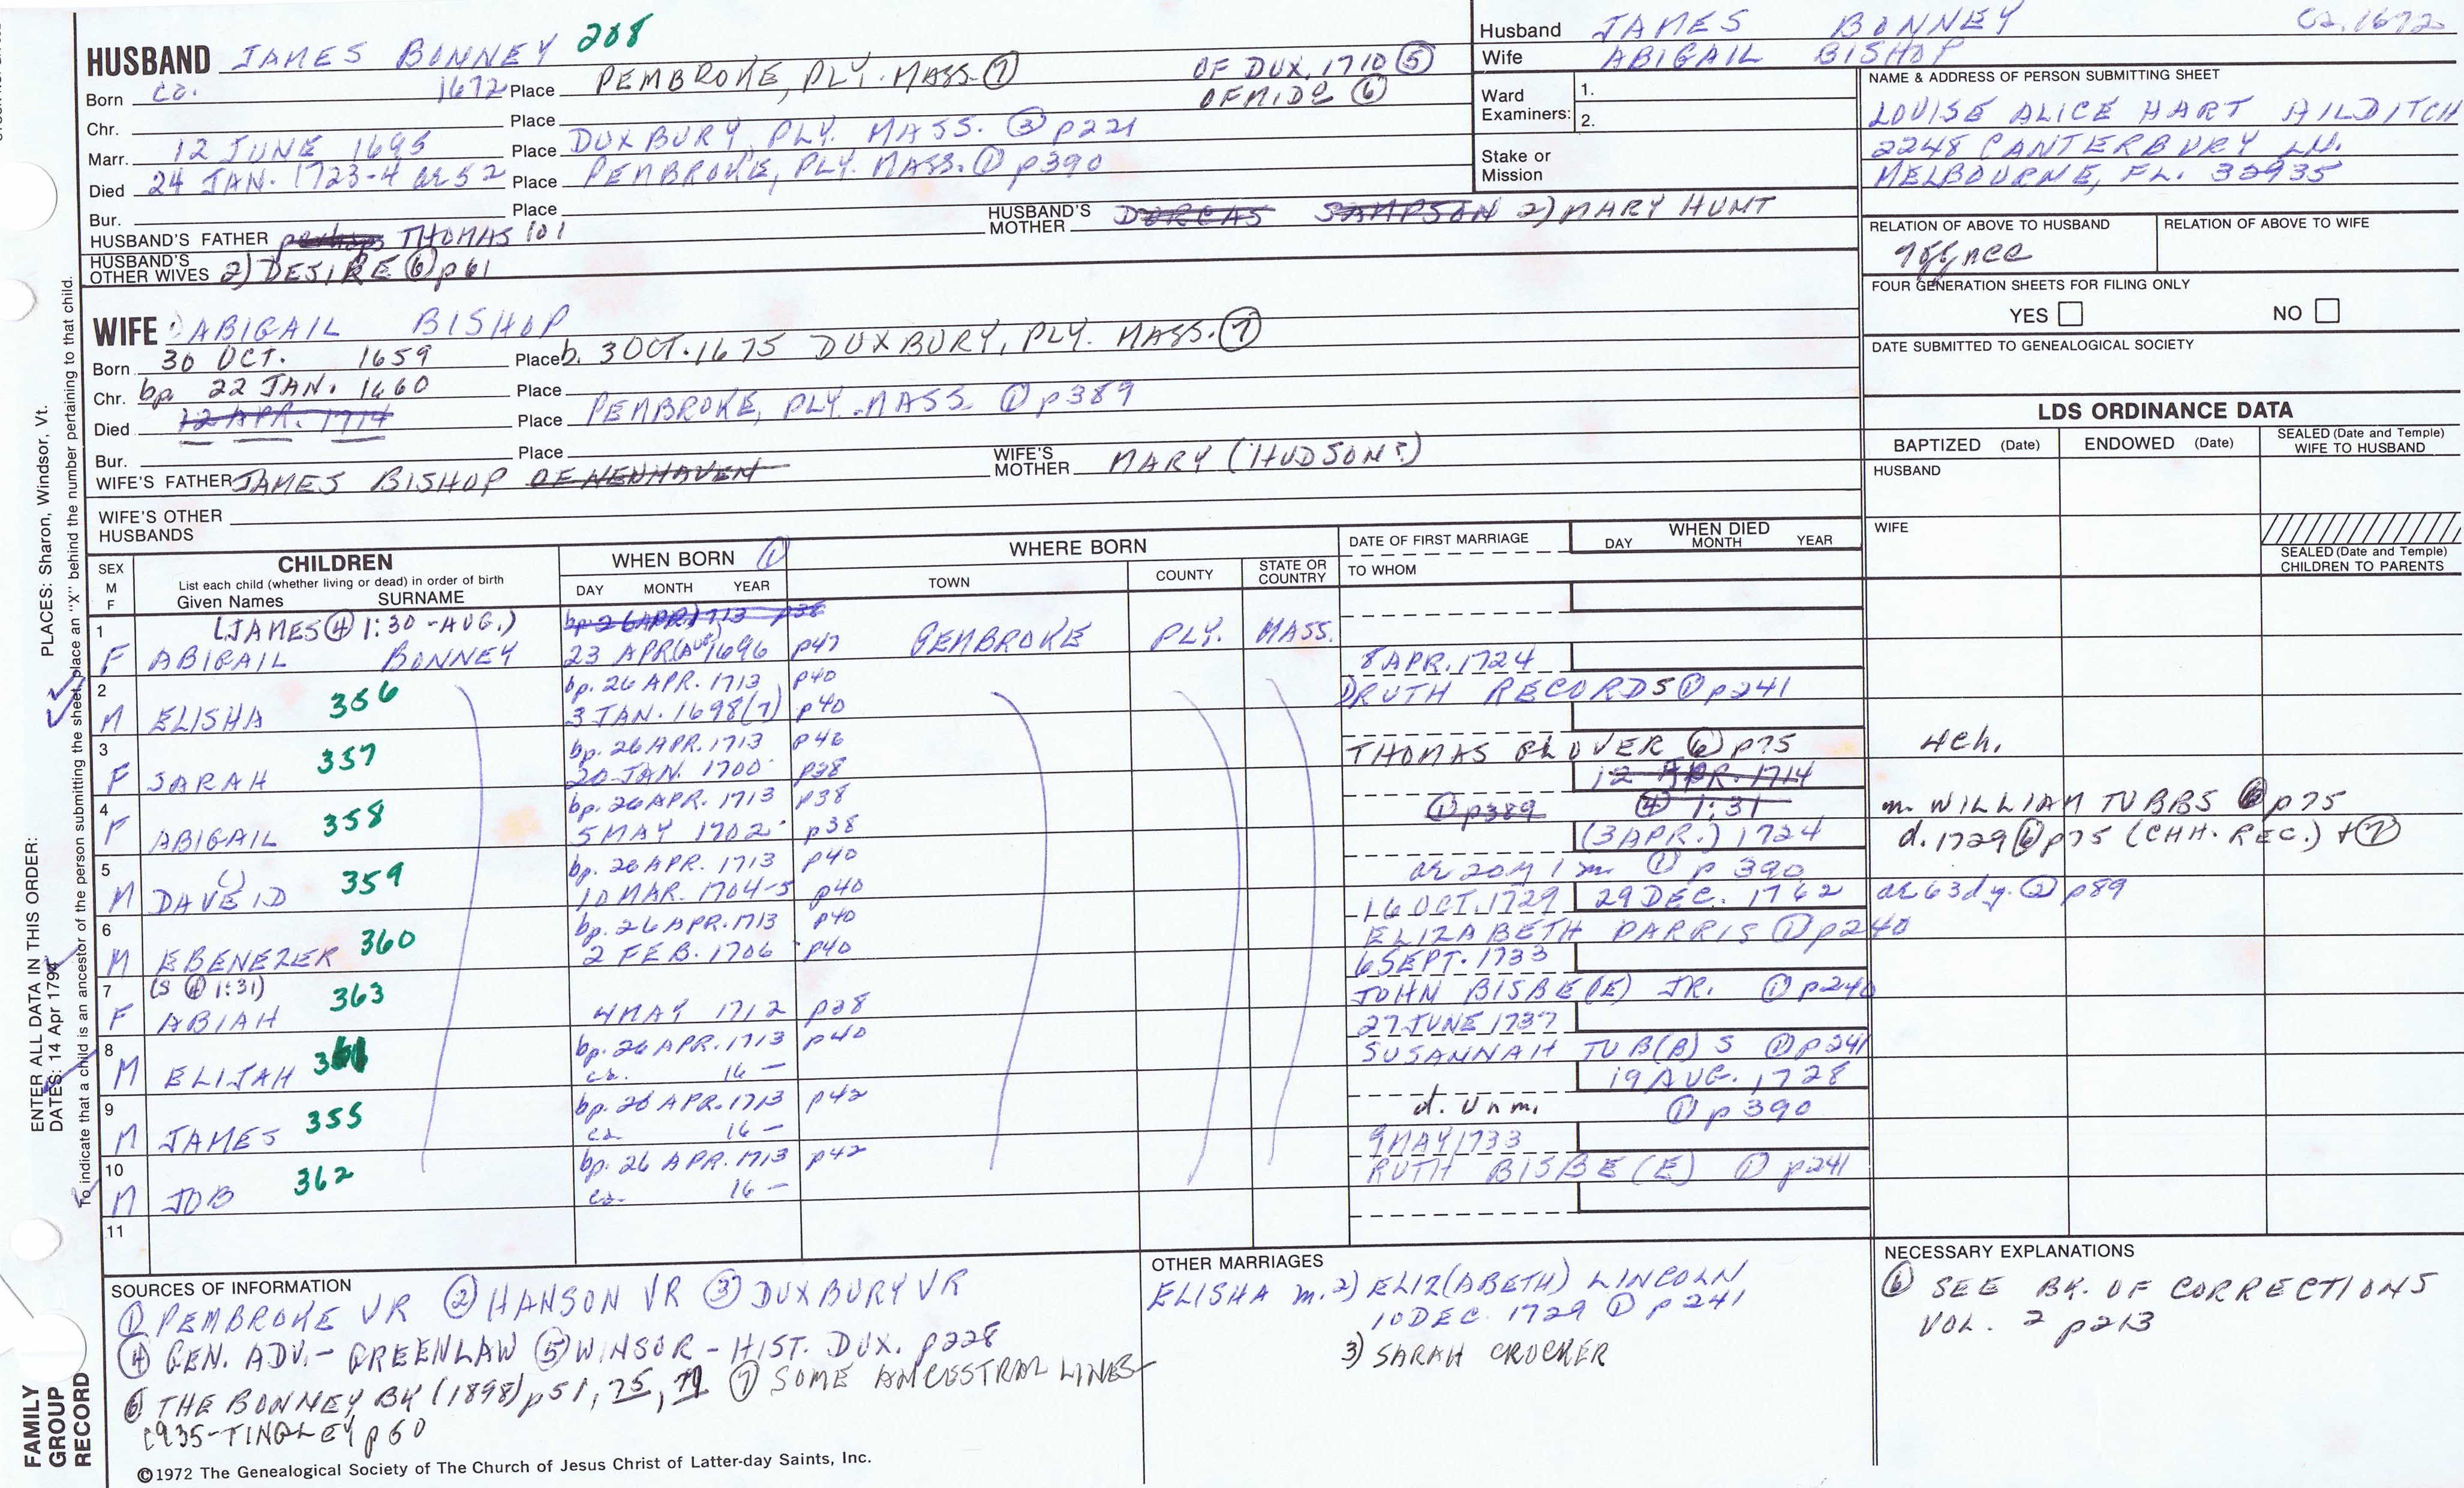 HUSBAND JAMES BONNEY 208
Born ca. 1672 Place PEMBROKE, PLY. MASS. ⑦ OF DUX. 1710 ⑤
Chr. Place
Marr. 12 JUNE 1695 Place DUXBURY, PLY. MASS. ③ p221
Died 24 JAN. 1723-4 ae 52 Place PEMBROKE, PLY. MASS. ① p390
Bur. Place
HUSBAND'S FATHER perhaps THOMAS 101
HUSBAND'S MOTHER DORCAS SAMPSON 2) MARY HUNT
HUSBAND'S OTHER WIVES 2) DESIRE ⑥ p61
Husband JAMES BONNEY ca. 1672
Wife ABIGAIL BISHOP
Ward Examiners: 1.
2.
Stake or Mission
NAME & ADDRESS OF PERSON SUBMITTING SHEET
LOUISE ALICE HART HILDITCH
2248 CANTERBURY LN.
MELBOURNE, FL. 32935
RELATION OF ABOVE TO HUSBAND
RELATION OF ABOVE TO WIFE
FOUR GENERATION SHEETS FOR FILING ONLY
YES NO
DATE SUBMITTED TO GENEALOGICAL SOCIETY
WIFE ABIGAIL BISHOP
Born 30 OCT. 1659 Place b. 3 OCT. 1675 DUXBURY, PLY. MASS. ⑦
Chr. bp 22 JAN. 1660 Place
Died 12 APR. 1714 Place PEMBROKE, PLY. MASS ① p389
Bur. Place
WIFE'S FATHER JAMES BISHOP OF NEWHAVEN
WIFE'S MOTHER MARY (HUDSON?)
WIFE'S OTHER HUSBANDS
LDS ORDINANCE DATA
BAPTIZED (Date) ENDOWED (Date) SEALED (Date and Temple) WIFE TO HUSBAND
HUSBAND
WIFE
SEALED (Date and Temple) CHILDREN TO PARENTS
SEX M F
CHILDREN
List each child (whether living or dead) in order of birth
Given Names SURNAME
WHEN BORN ①
DAY MONTH YEAR
WHERE BORN
TOWN COUNTY STATE OR COUNTRY
DATE OF FIRST MARRIAGE
TO WHOM
WHEN DIED
DAY MONTH YEAR
1 (JAMES ④ 1:30 - AUG.) bp 26 APR 1713 p38
F ABIGAIL BONNEY 23 APR (AUG) 1696 p47 PEMBROKE PLY. MASS.
2 bp. 26 APR. 1713 p40 8 APR. 1724
M ELISHA 356 3 JAN. 1698(7) p40 RUTH RECORDS ① p241
3 bp. 26 APR. 1713 p42
F SARAH 357 20 JAN. 1700 p38 THOMAS GLOVER ⑥ p75 4 ch.
4 bp. 26 APR. 1713 p38 12 APR. 1714
F ABIGAIL 358 5 MAY 1702 p38 ① p389 ④ 1:31 m. WILLIAM TUBBS ⑥ p75
5 bp. 26 APR. 1713 p40 (3 APR.) 1724 d. 1729 ⑥ p75 (CHH. REC.) + ⑦
M DAVEID 359 10 MAR. 1704-5 p40 ae 20y 1 m ① p 390
6 bp. 26 APR. 1713 p40 16 OCT. 1729 29 DEC. 1762 ae 63d y. ② p89
M EBENEZER 360 2 FEB. 1706 p40 ELIZABETH PARRIS ① p240
7 (S ④ 1:31) 6 SEPT. 1733
F ABIAH 363 4 MAY 1712 p38 JOHN BISBE(E) JR. ① p240
8 bp. 26 APR. 1713 p40 27 JUNE 1737
M ELIJAH 361 ca. 16 — SUSANNAH TUB(B)S ① p241
9 bp. 26 APR. 1713 p42 19 AUG. 1728
M JAMES 355 ca 16 — d. unm. ① p390
10 bp. 26 APR. 1713 p42 9 MAY 1733
M JOB 362 ca. 16 — RUTH BISBE(E) ① p241
11
SOURCES OF INFORMATION
① PEMBROKE VR ② HANSON VR ③ DUXBURY VR
④ GEN. ADV. - GREENLAW ⑤ WINSOR - HIST. DUX. p228
⑥ THE BONNEY BK (1898) p51, 75, 79 ⑦ SOME ANCESTRAL LINES
1935-TINGLEY p60
OTHER MARRIAGES
ELISHA m. 2) ELIZ(ABETH) LINCOLN
10 DEC. 1729 ① p241
3) SARAH CROCKER
NECESSARY EXPLANATIONS
⑥ SEE BK. OF CORRECTIONS
VOL. 2 p213
©1972 The Genealogical Society of The Church of Jesus Christ of Latter-day Saints, Inc.
FAMILY GROUP RECORD
ENTER ALL DATA IN THIS ORDER: PLACES: Sharon, Windsor, Vt.
DATES: 14 Apr 1794
To indicate that a child is an ancestor of the person submitting the sheet, place an "X" behind the number pertaining to that child.